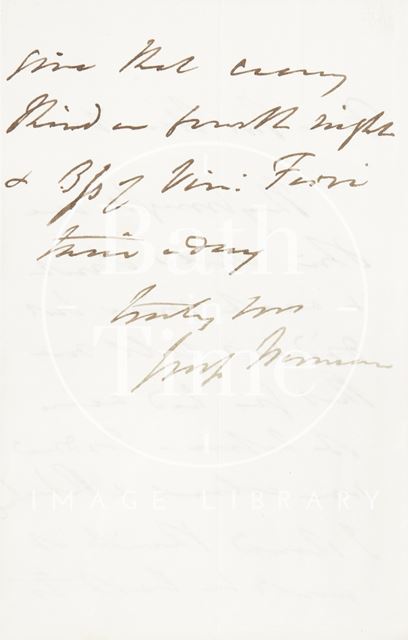 give that every
third or fourth night
& Bfs of Vin: Ferri
twice a day
truly yrs
Geo. Norman
Bath
in
Time
IMAGE LIBRARY